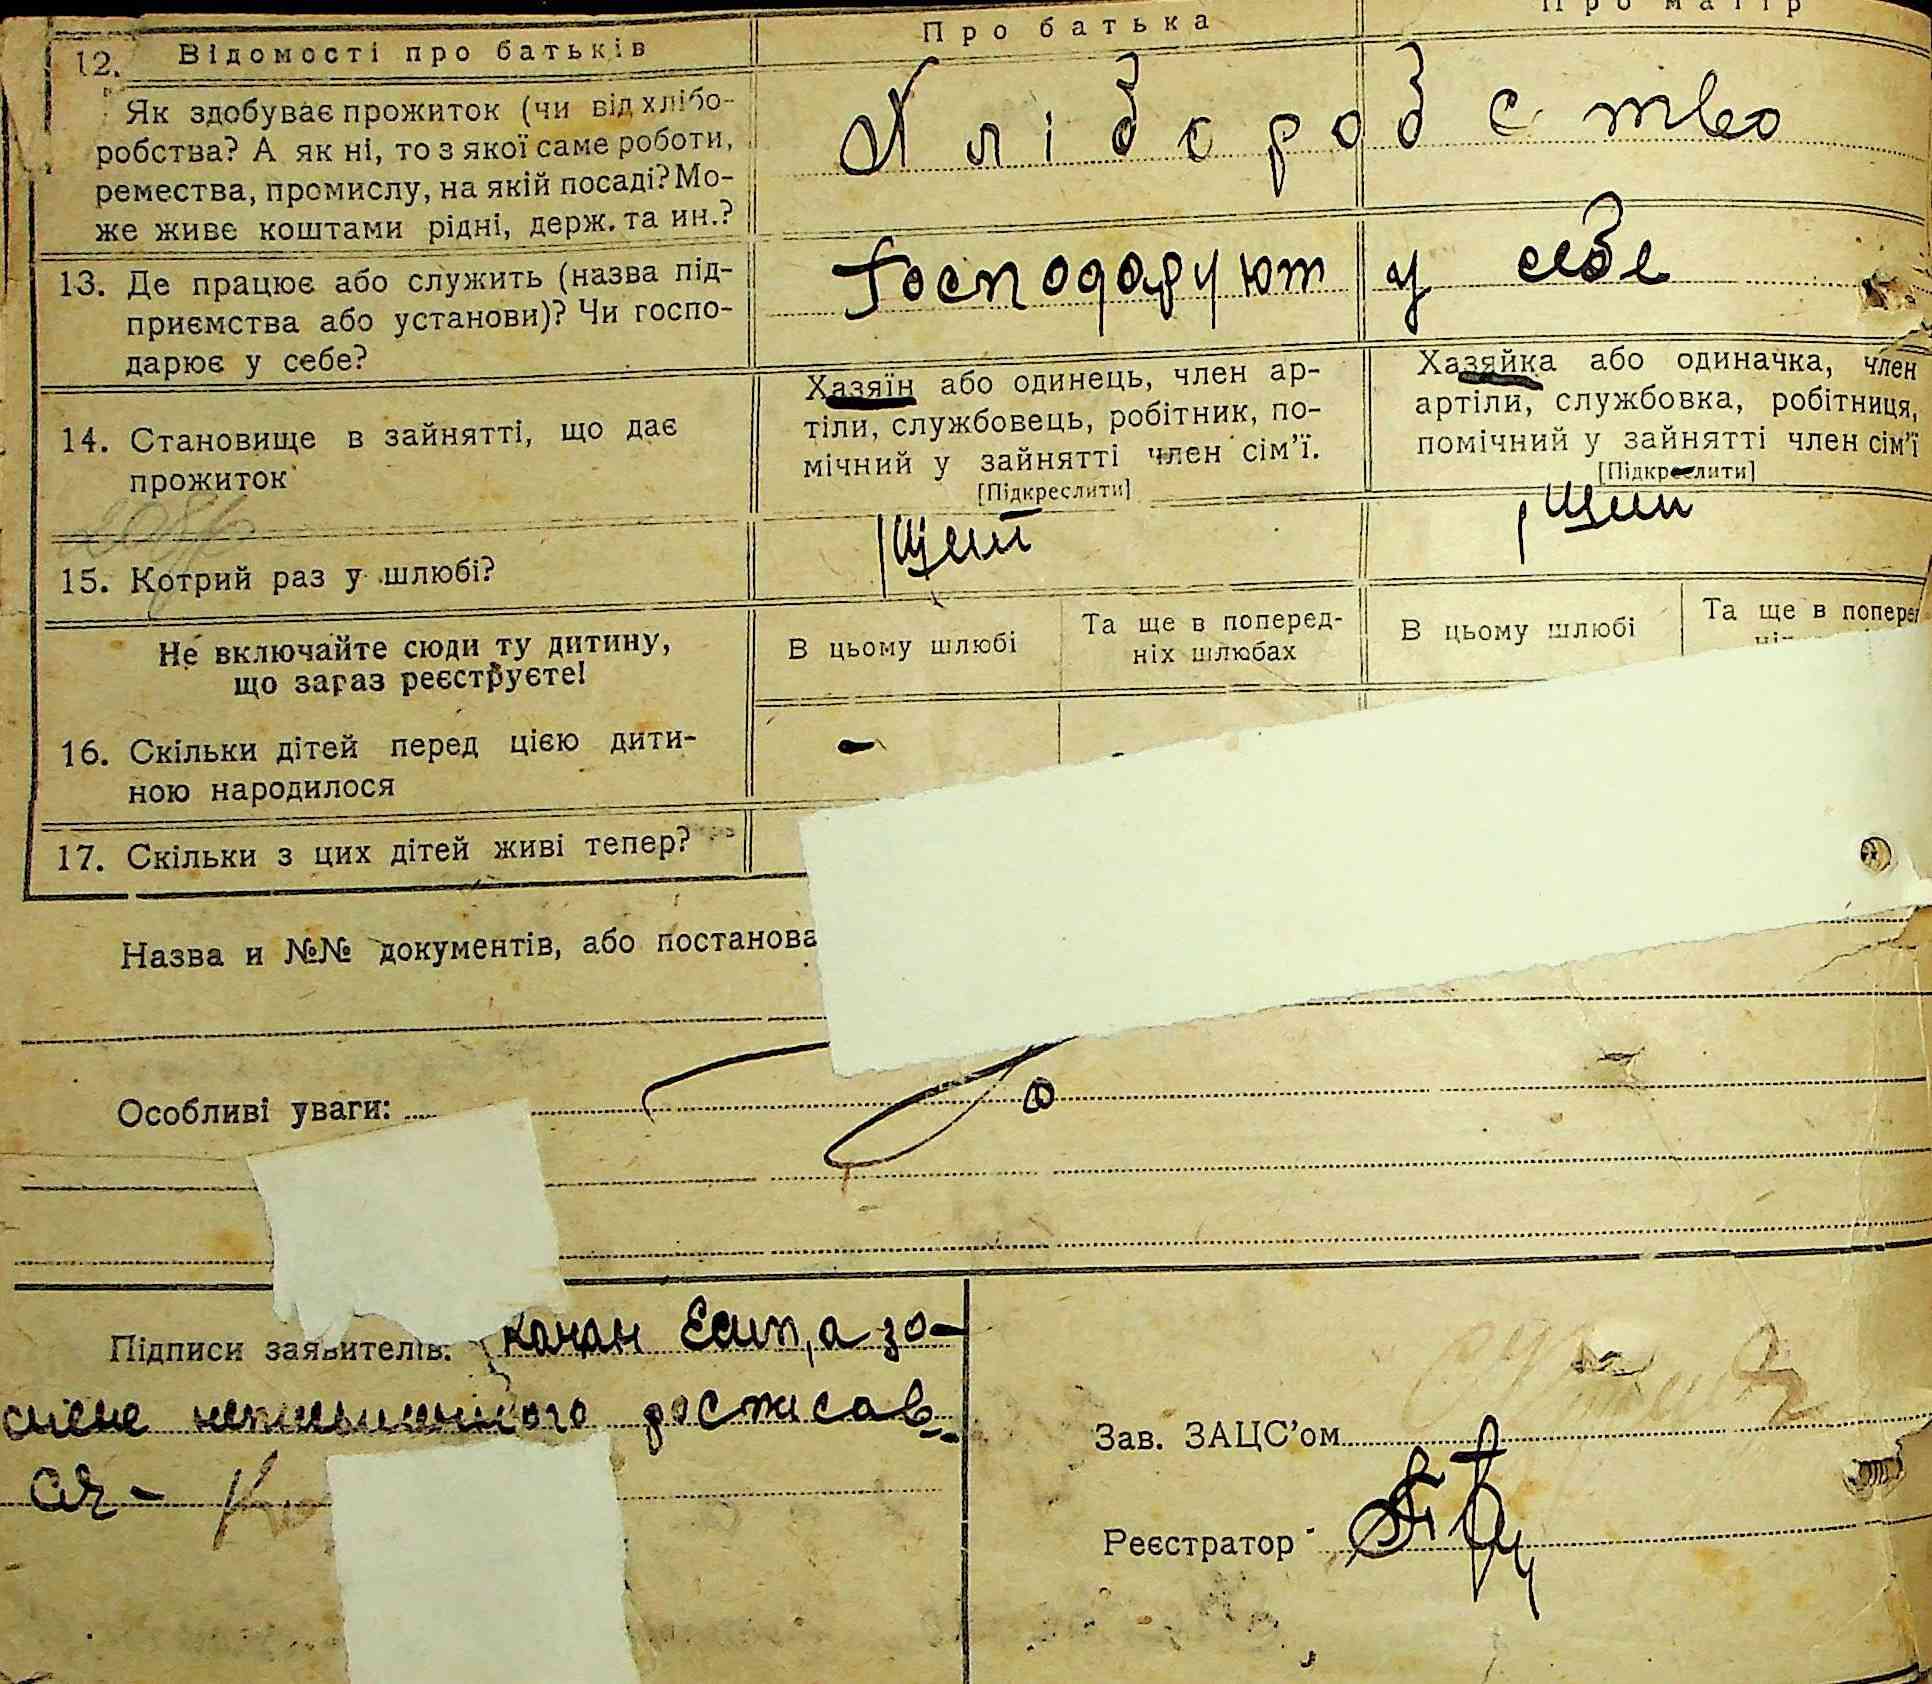 12. Відомості про батьків
Про батька
Про матір
Як здобуває прожиток (чи від хлібо-
робства? А як ні, то з якої саме роботи,
ремества, промислу, на якій посаді? Мо-
же живе коштами рідні, держ. та ин.?
Хліборобство
13. Де працює або служить (назва під-
приємства або установи)? Чи госпо-
дарює у себе?
Господарують у себе
14. Становище в зайнятті, що дає
прожиток
Хазяїн або одинець, член ар-
тіли, службовець, робітник, по-
мічний у зайнятті член сім'ї.
[Підкреслити]
Хазяйка або одиначка, член
артіли, службовка, робітниця,
помічний у зайнятті член сім'ї
[Підкреслити]
15. Котрий раз у шлюбі?
Не включайте сюди ту дитину,
що зараз реєструєте!
В цьому шлюбі
Та ще в поперед-
ніх шлюбах
В цьому шлюбі
Та ще в попере
16. Скільки дітей перед цією дити-
ною народилося
-
17. Скільки з цих дітей живі тепер?
Назва и №№ документів, або постанова
Особливі уваги:
Підписи заявителів: Качан Есип, а за-
росписав-
ся-
Зав. ЗАЦС'ом
Реєстратор